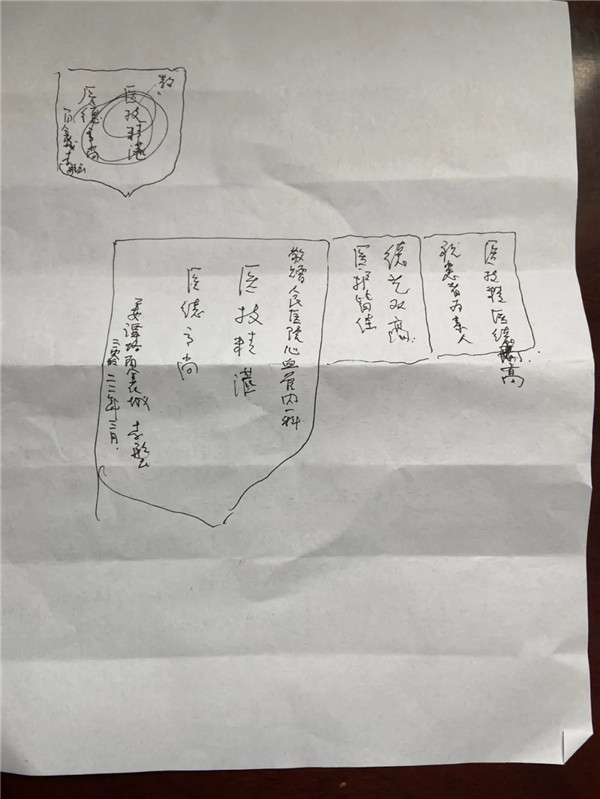 敬
医技精湛
医德高尚
医技精医德高
视患者为亲人
德艺双高
医护皆佳
敬赠人民医院心血管内一科
医技精湛
医德高尚
姜谭路百鑫城
二二年三月